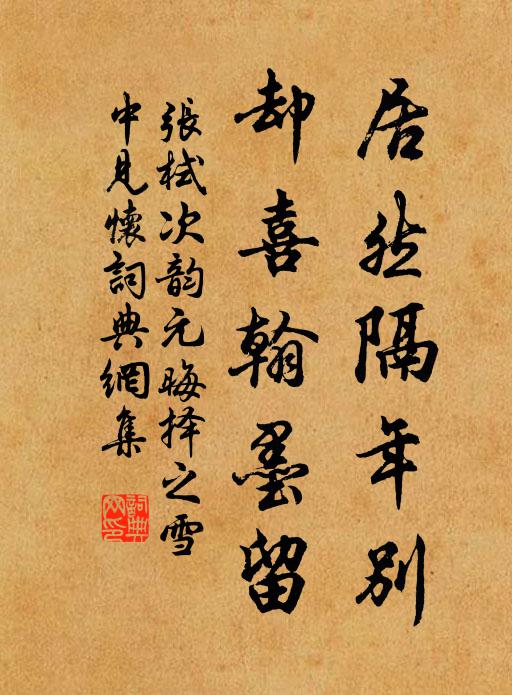 居然隔年别
却喜翰墨留
張栻次韵元晦择之雪
中見懷詞典網集
詞典
网印